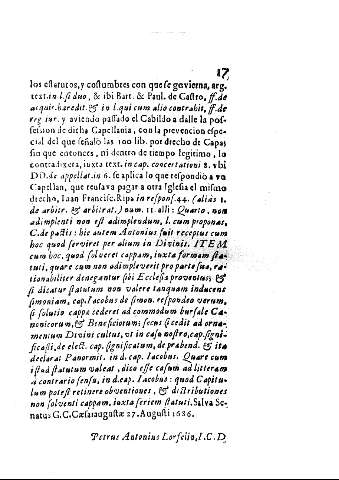 17
los estatutos, y costumbres con que se govierna, arg.
text. in l. si duo, & ibi Bart. & Paul. de Castro, ff. de
acquir. hæredit. & in l. qui cum alio contrahit, ff. de
reg iur. y aviendo passado el Cabildo a dalle la pos-
session de dicha Capellania, con la prevencion espe-
cial del que señalo las 100 lib. por drecho de Capas
sin que entonces, ni dentro de tiempo legitimo, lo
contradixera, iuxta text. in cap. concertationi 8. ubi
DD. de appellat. in 6. se aplica lo que respondiò a un
Capellan, que reusava pagar a otra Iglesia el mismo
drecho, Ioan Francisc. Ripa in respons. 44. (aliàs 1.
de arbitr. & arbitrat.) num. 11. alli: Quarto, non
adimplenti non est adimplendum, l. cum proponas,
C. de pactis: hic autem Antonius fuit receptus cum
hoc quod serviret per alium in Divinis. ITEM
cum hoc, quod solveret cappam, iuxta formam sta-
tuti, quare cum non adimpleverit pro parte sua, ra-
tionabiliter denegantur sibi Ecclesiæ proventus; &
si dicatur statutum non valere tanquam inducens
simoniam, cap. Iacobus de simon. respondeo verum,
si solutio cappæ cederet ad commodum bursale Ca-
nonicorum, & Beneficiorum; secus si cedit ad orna-
mentum Divini cultus, ut in casu nostro, cap. signi-
ficasti, de elect. cap. significatum, de præbend. & ita
declarat Panormit. in d. cap. Iacobus. Quare cum
istud statutum valeat, dico esse casum ad litteram
à contrario sensu, in d. cap. Iacobus: quod Capitu-
lum potest retinere obventiones, & distributiones
non solventi cappam, iuxta seriem statuti. Salva Se-
natus G. C. Cæsaraugustæ 27. Augusti 1686.
Petrus Antonius Lorfelio, I. C. D